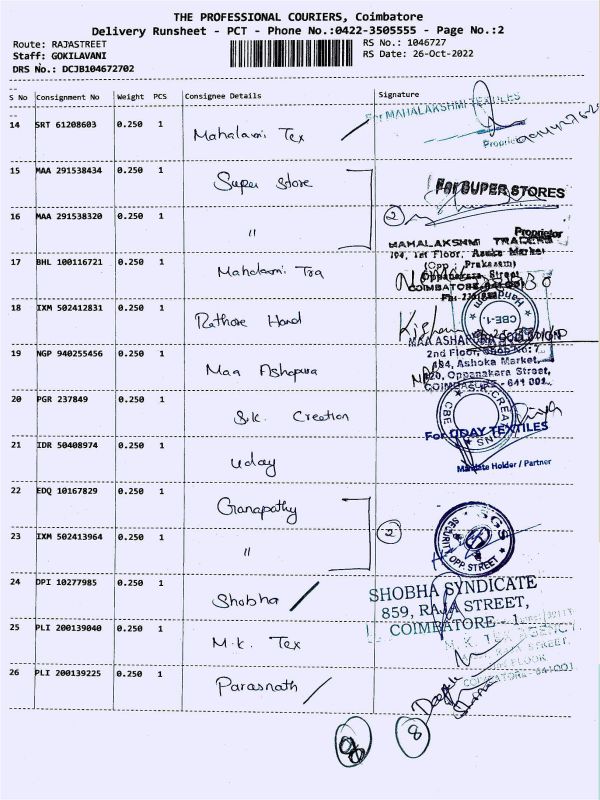 THE PROFESSIONAL COURIERS, Coimbatore
Delivery Runsheet - PCT - Phone No.:0422-3505555 - Page No.:2
Route: RAJASTREET
RS No.: 1046727
Staff: GOKILAVANI
RS Date: 26-Oct-2022
DRS No.: DCJB104672702
S No Consignment No Weight PCS Consignee Details Signature
14 SRT 61208603 0.250 1 Mahalaxmi Tex
For MAHALAKSHMI TEXTILES
Proprietor
15 MAA 291538434 0.250 1 Super Store
For SUPER STORES
16 MAA 291538320 0.250 1 "
2
Proprietor
MAHALAKSHMI TRADERS
194, 1st Floor, Asoka Market
(Opp : Prakasam)
Oppanakara Street
COIMBATORE-641001
17 BHL 100116721 0.250 1 Mahalaxmi Tra
18 IXM 502412831 0.250 1 Rathore Hand
CBE-1.
Kishan
MAA ASHAPURA
2nd Floor, Shop No: 7
Ashoka Market,
Oppanakara Street,
COIMBATORE - 641 001.
19 NGP 940255456 0.250 1 Maa Ashapura
20 PGR 237849 0.250 1 S.K. Creation
S.K.CREATIONS
CBE
For UDAY TEXTILES
21 IDR 50408974 0.250 1 Uday
Mandate Holder / Partner
22 EDQ 10167829 0.250 1 Ganapathy
23 IXM 502413964 0.250 1 "
2
SGS
SECURITY
OPP. STREET
24 DPI 10277985 0.250 1 Shobha
SHOBHA SYNDICATE
859, RAJA STREET,
COIMBATORE - 1.
25 PLI 200139040 0.250 1 M.K. Tex
M. K. TEX AGENCY
STREET,
FLOOR
COIMBATORE-641001
26 PLI 200139225 0.250 1 Parasnath
Deepak
8
8